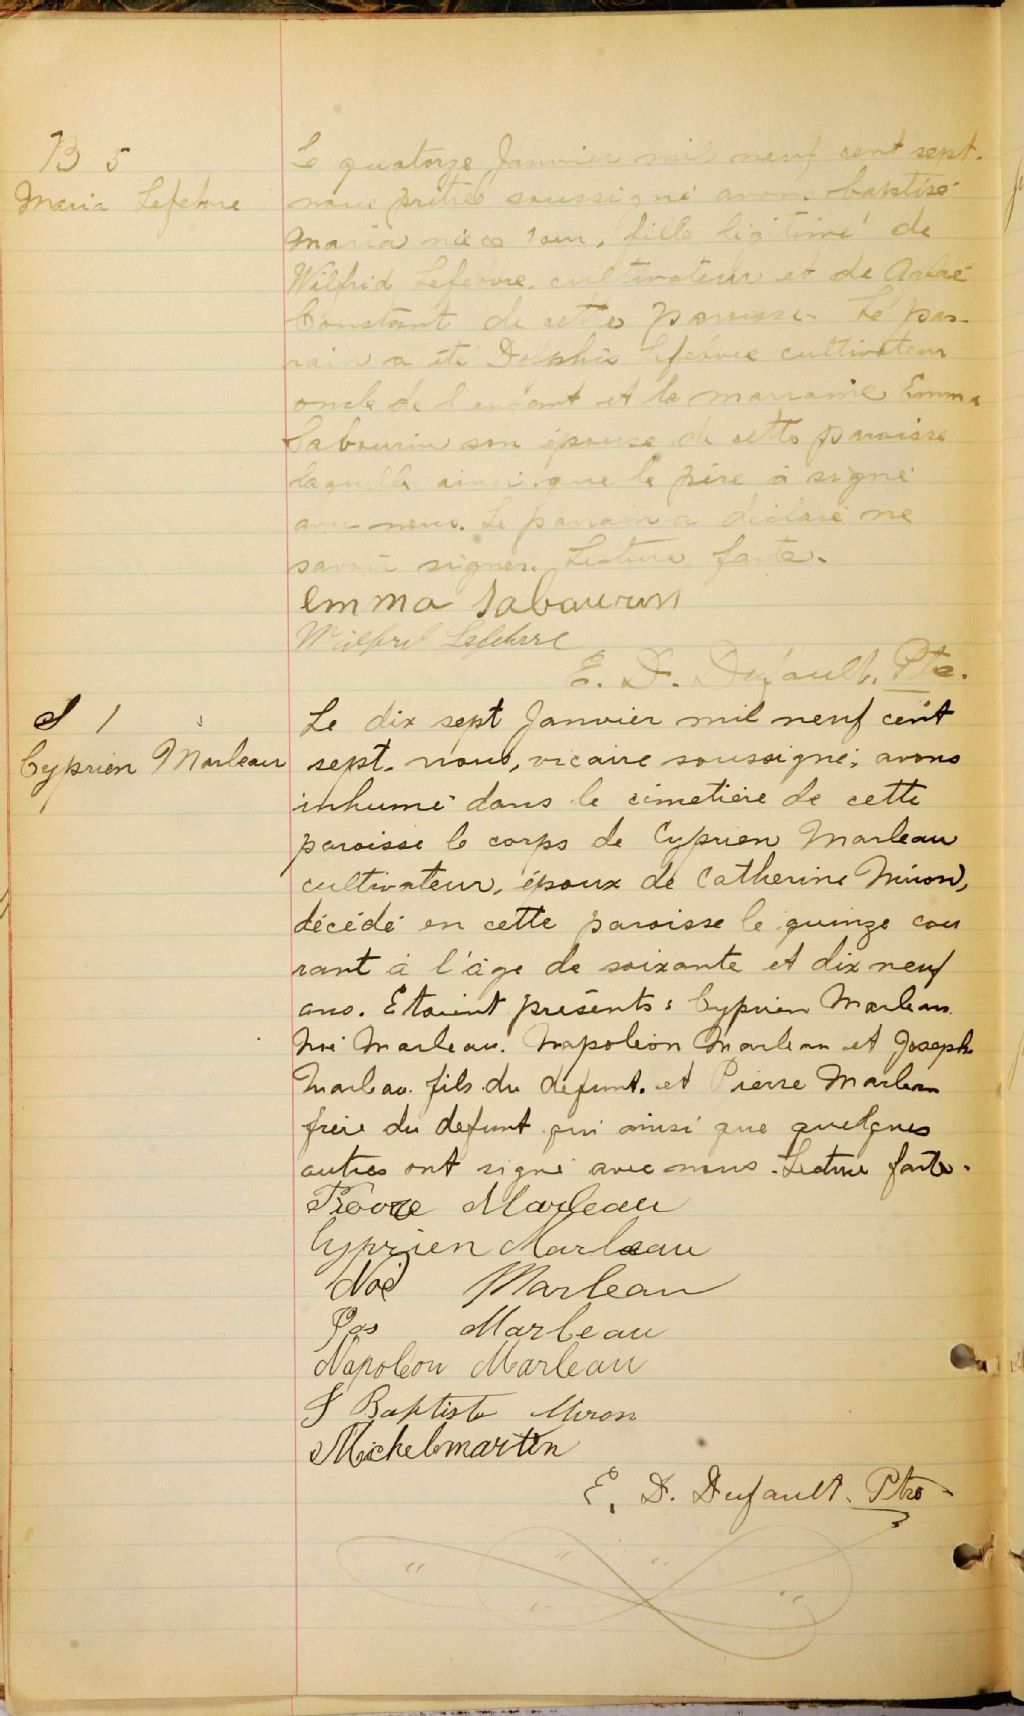 B 5
Maria Lefebvre
Le quatorze Janvier mil neuf cent sept.
nous prêtre soussigné avons baptisé
Maria née ce jour, fille légitime de
Wilfrid Lefebvre, cultivateur et de
Constant de cette paroisse. Le par-
rain a été Delphis Lefebvre cultivateur
oncle de l'enfant et la marraine Emma
Sabourin son épouse de cette paroisse
laquelle ainsi que le père a signé
avec nous. Le parrain a déclaré ne
savoir signer. Lecture faite.
Emma Sabourin
Wilfrid Lefebvre
E. D. Dufault. Ptre.
S 1
Cyprien Marleau
Le dix sept Janvier mil neuf cent
sept. nous, vicaire soussigné, avons
inhumé dans le cimetière de cette
paroisse le corps de Cyprien Marleau
cultivateur, époux de Catherine Miron,
décédé en cette paroisse le quinze cou
rant à l'âge de soixante et dix neuf
ans. Etaient présents: Cyprien Marleau.
Noé Marleau. Napoléon Marleau et Joseph
Marleau fils du défunt. et Pierre Marleau
frère du defunt qui ainsi que quelques
autres ont signé avec nous. Lecture faite.
Marleau
Cyprien Marleau
Noé Marleau
Jos Marleau
Napoléon Marleau
J Baptiste Miron
Michel martin
E. D. Dufault. Ptre